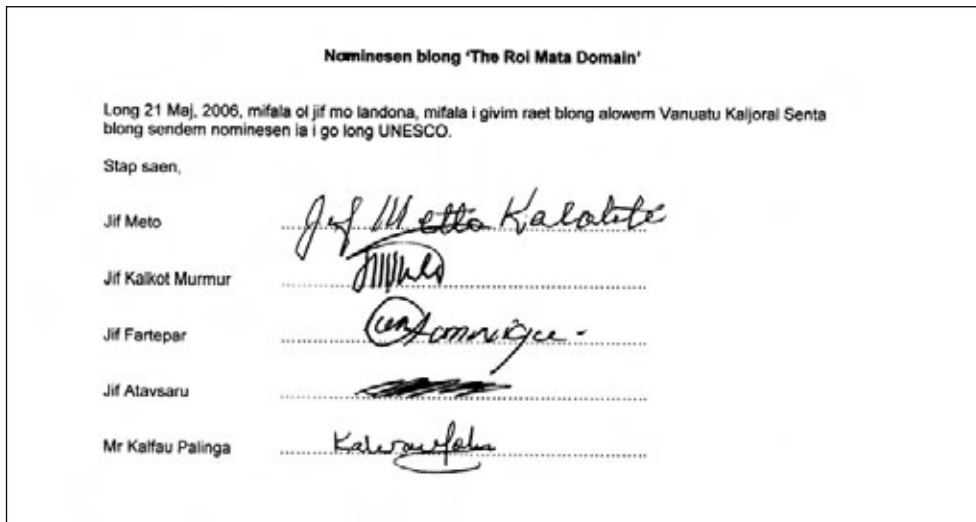 Nominesen blong ‘The Roi Mata Domain’
Long 21 Maj, 2006, mifala ol jif mo landona, mifala i givim raet blong alowem Vanuatu Kaljoral Senta
blong sendem nominesen ia i go long UNESCO.
Stap saen,
Jif Meto Jif Metto Kalotiti
Jif Kalkot Murmur
Jif Fartepar
Jif Atavsaru
Mr Kalfau Palinga